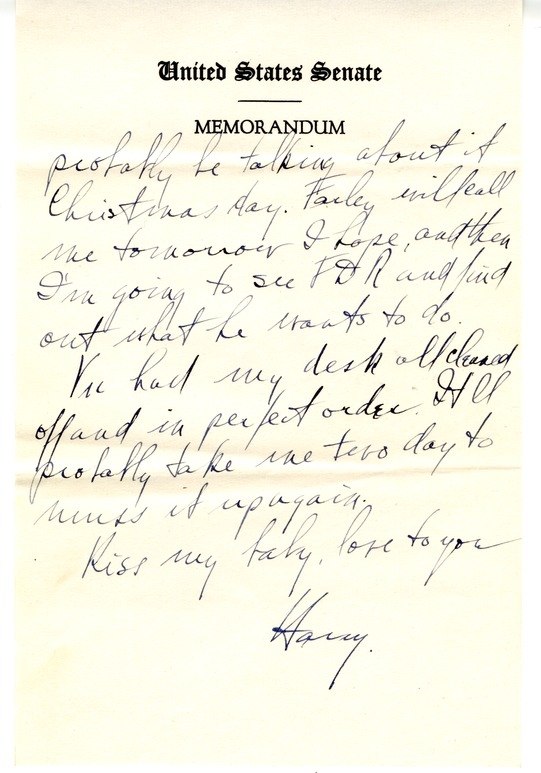 United States Senate
MEMORANDUM
probably be talking about it
Christmas day. Farley will call
me tomorrow I hope, and then
I'm going to see FDR and find
out what he wants to do.
Vic had my desk all cleaned
off and in perfect order. It'll
probably take me two day to
muss it up again.
Kiss my baby, love to you
Harry.